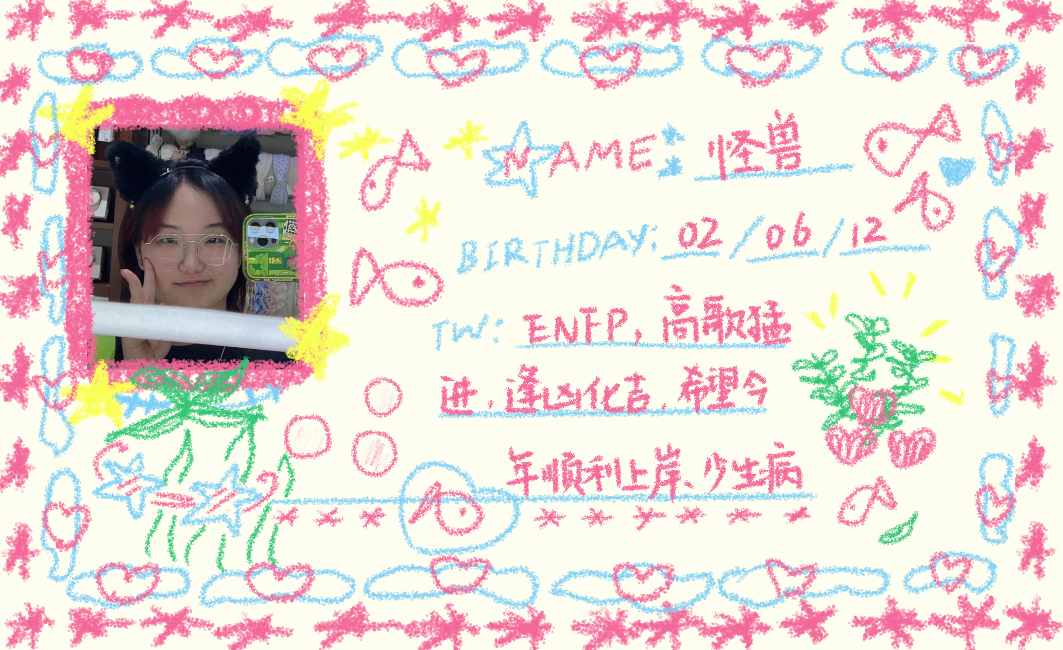 NAME: 怪兽
BIRTHDAY: 02/06/12
TW: ENFP, 高歌猛
进，逢凶化吉，希望今
年顺利上岸、少生病